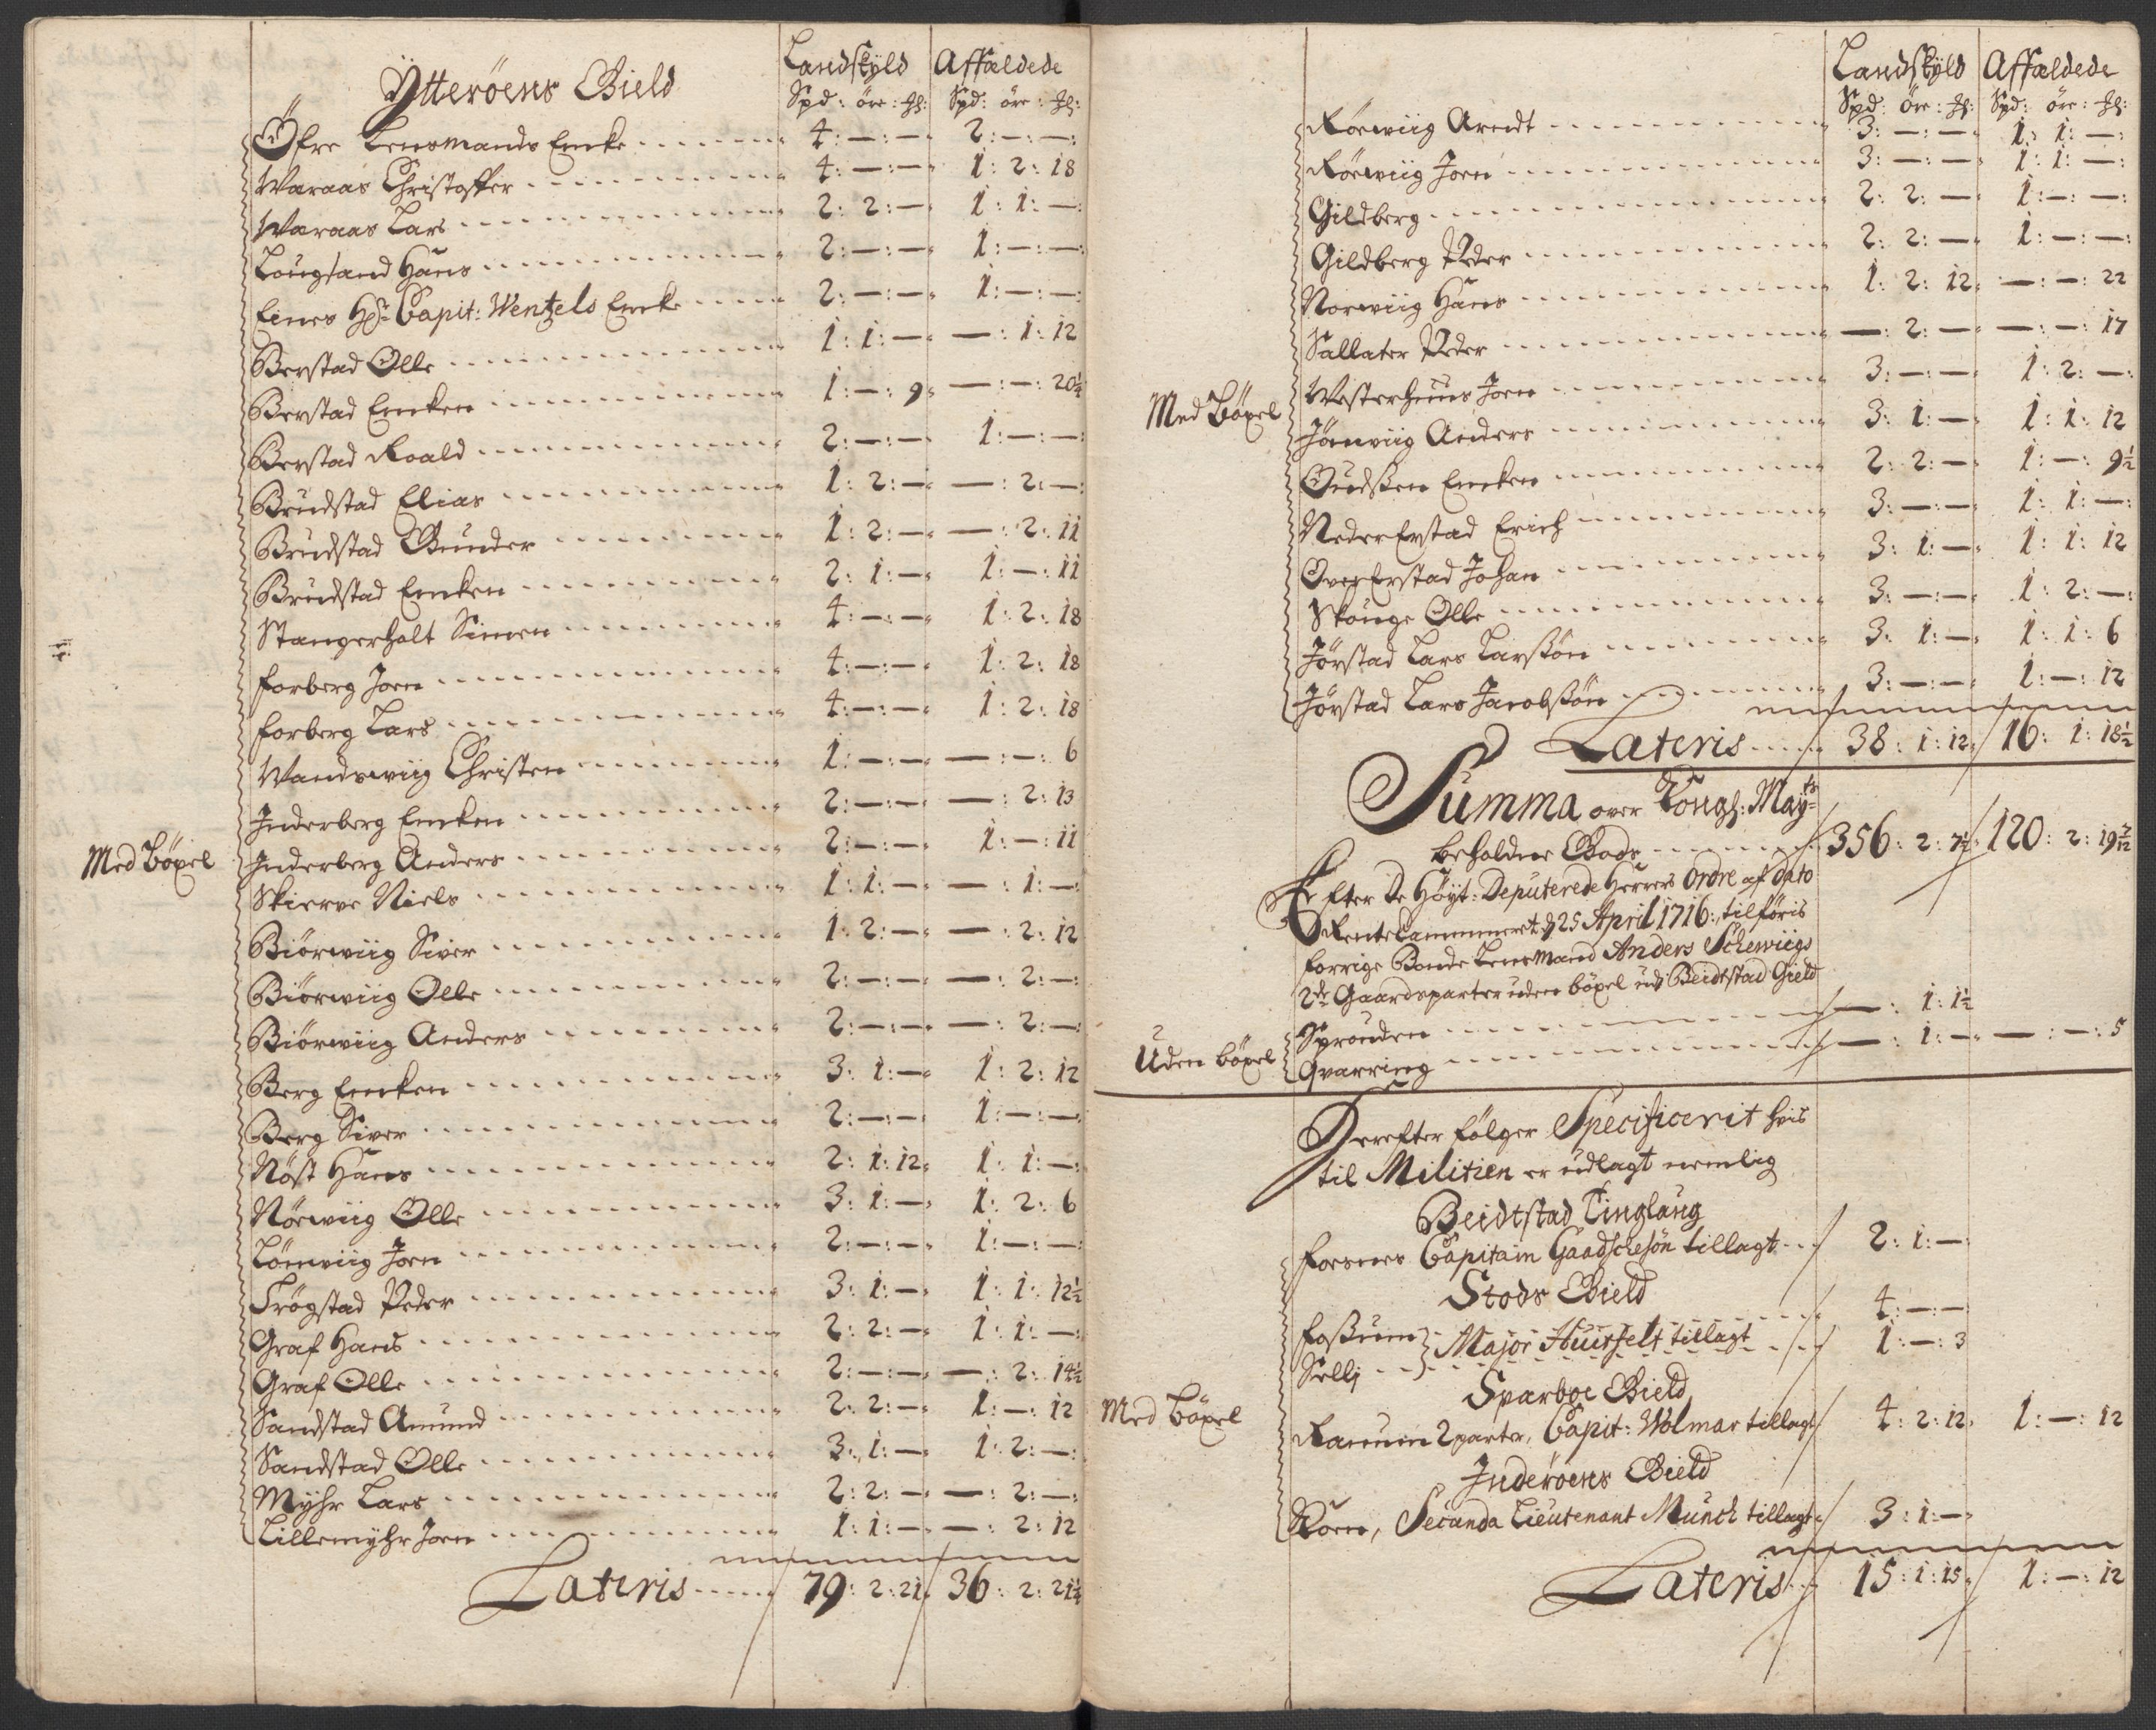 Ytteröens Gield
Landskyld Affældede
Spd: öre: Spd: öre:
Öfre Lensmands Encke 4:—:— 2:—:—:
Waraas Christoffer 4:—:— 1: 2: 18
Waraas Lars 2: 2:— 1: 1:—:
Lougsand Hans 2:—:— 1:—:—:
Eines Hr: Capit: Wentzels Encke 2:—:— 1:—:—:
Berstad Olle 1: 1:— —: 1: 12
Berstad Encken 1:—: 9 —:—: 20½
Berstad Roald 2:—:— 1:—:—:
Brudstad Elias 1: 2:— —: 2:—:
Brudstad Gunder 1: 2:— —: 2: 11
Brudstad Encken 2: 1:— 1:—: 11
Stangerholt Simen 4:—:— 1: 2: 18
Forberg Joen 4:—:— 1: 2: 18
Forberg Lars 4:—:— 1: 2: 18
Wandswiig Christen 1:—:— —:—: 6
Inderberg Encken 2:—:— —: 2: 13
Med Böxel Inderberg Anders 2:—:— 1:—: 11
Skierve Niels 1: 1:— —: 1:—:
Biörwiig Siver 1: 2:— —: 2: 12
Biörwiig Olle 2:—:— —: 2:—:
Biörwiig Anders 2:—:— —: 2:—:
Berg Encken 3: 1:— 1: 2: 12
Berg Siver 2:—:— 1:—:—:
Nöst Hans 2: 1: 12 1: 1:—:
Nörwiig Olle 3: 1:— 1: 2: 6
Lömviig Joen 2:—:— 1:—:—:
Trögstad Peder 3: 1:— 1: 1: 12½
Graf Hans 2: 2:— 1: 1:—:
Graf Olle 2:—:— —: 2: 14½
Sandstad Amund 2: 2:— 1:—: 12
Sandstad Olle 3: 1:— 1: 2:—:
Myhr Lars 2: 2:— —: 2:—:
Lillemyhr Joen 1: 1:— —: 2: 12
Lateris 79: 2: 21 36: 2: 21¼
Landskyld Affældede
Spd: öre: Spd: öre:
Rörwiig Arndt 3:—:— 1: 1:—:
Rörwiig Joen 3:—:— 1: 1:—:
Gildberg 2: 2:— 1:—:—:
Gildberg Peder 2: 2:— 1:—:—:
Norwiig Hans 1: 2: 12 —:—: 22
Sallater Peder —: 2:— —:—: 17
Westerhuus Joen 3:—:— 1: 2:—:
Med Böxel Jörnviig Anders 3: 1:— 1: 1: 12
Oudsen Encken 2: 2:— 1:—: 9½
Neder Erstad Erich 3:—:— 1: 1:—:
Over Erstad Johan 3: 1:— 1: 1: 12
Skouge Olle 3:—:— 1: 2:—:
Jörstad Lars Larssön 3: 1:— 1: 1: 6
Jörstad Lars Jacobssön 3:—:— 1:—: 12
Lateris 38: 1: 12 16: 1: 18½
Summa over Kongl: Mayts
beholdne Gods 356: 2: 7½ 120: 2: 19 7/12
Efter De Höyt: Deputerede Herrers Ordre af Dato
Rente Cammeret d 25 April 1716: tilföris
forrige Bonde Lensmand Anders Schewiigs
2de Gaardsparter uden böxel udi Beidtstad Gield
Sprouden —: 1: 1½
Uden böxel Qvarring —: 1:— —:—: 5
Derefter fölger Specificerit hvis
til Militien er udlagt nemlig
Beidtstad Tinglaug
Forsnes Capitain Gaadschesön tillagt 2: 1:—
Stods Gield
Fossum } Major Huusfelt tillagt 4:—:—
Sellj 1:—: 3
Sparboe Gield
Med Böxel Ranum 2 parter, Capit: Wolmar tillagt 4: 2: 12 1:—: 12
Inderöens Gield
Roen, Secunda Lieutenant Munch tillagt 3: 1:—
Lateris 15: 1: 15 1:—: 12